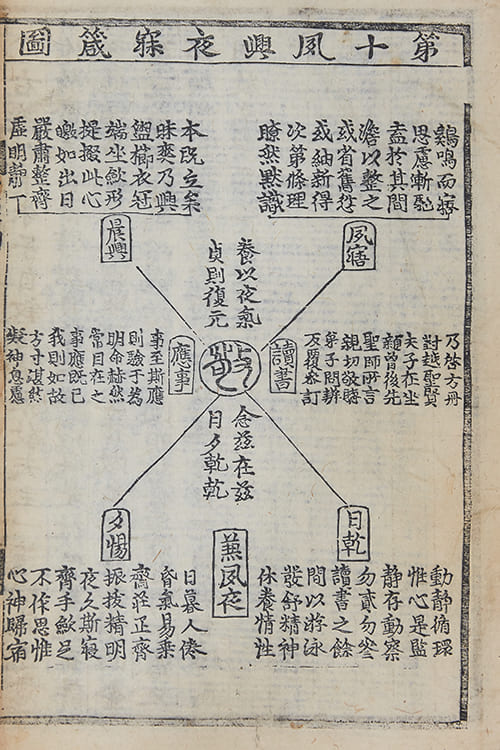 第十夙興夜寐箴圖
鷄鳴而寤
思慮漸馳
盍於其間
澹以整之
或省舊愆
或紬新得
次第條理
瞭然默識
夙寤
本旣立矣
昧爽乃興
盥櫛衣冠
端坐斂形
提掇此心
皦如出日
嚴肅整齊
虛明靜一
晨興
養以夜氣
貞則復元
乃啓方冊
對越聖賢
夫子在坐
顔曾後先
聖師所言
親切敬聽
弟子問辨
反覆參訂
讀書
敬
應事
事至斯應
則驗于爲
明命赫然
常目在之
事應旣已
我則如故
方寸湛然
凝神息慮
念玆在玆
日夕乾乾
日乾
動靜循環
惟心是監
靜存動察
勿貳勿參
讀書之餘
間以游泳
發舒精神
休養情性
兼夙夜
夕惕
日暮人倦
昏氣易乘
齋莊正齊
振拔精明
夜久斯寢
齊手斂足
不作思惟
心神歸宿